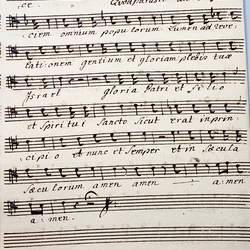 ce. Quod parasti ante
ciem omnium populorum Lumen ad reve
lationem gentium et gloriam plebis tuæ
Israel gloria Patri et Filio
et Spiritui Sancto Sicut erat in prin
cipio et nunc et Semper et in Sæcula
Sæculorum amen amen a
a: men.